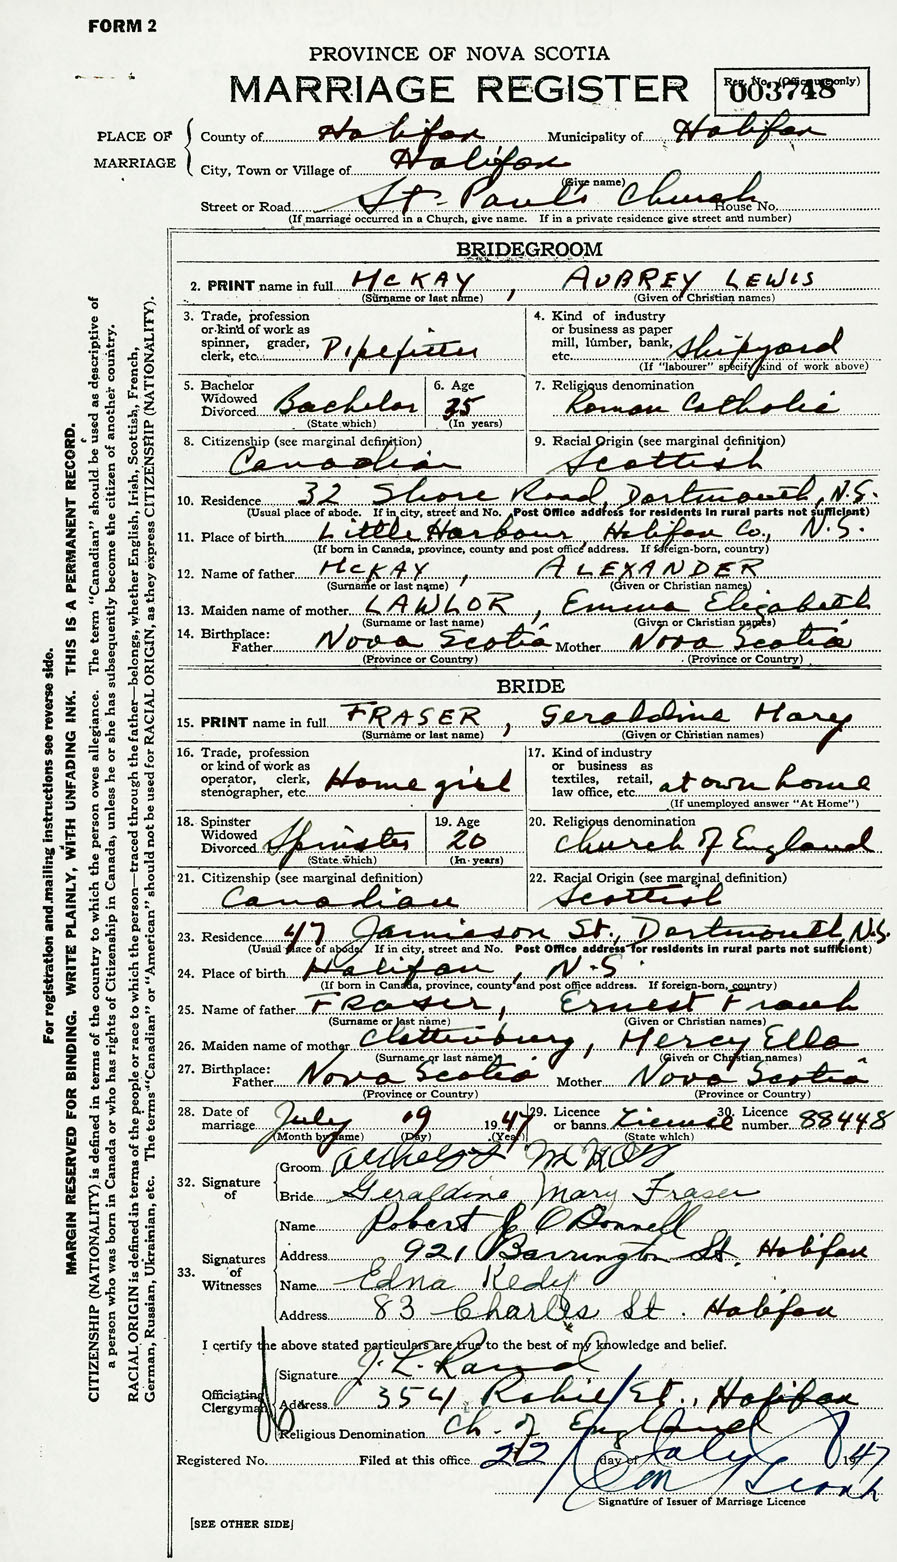 FORM 2
PROVINCE OF NOVA SCOTIA
MARRIAGE REGISTER
Reg. No. (Office use only)
003748
PLACE OF MARRIAGE
County of Halifax Municipality of Halifax
City, Town or Village of Halifax
(Give name)
Street or Road St. Paul's Church House No.
(If marriage occurred in a Church, give name. If in a private residence give street and number)
BRIDEGROOM
2. PRINT name in full McKAY, AUBREY LEWIS
(Surname or last name) (Given or Christian names)
3. Trade, profession or kind of work as spinner, grader, clerk, etc. Pipefitter
4. Kind of industry or business as paper mill, lumber, bank, etc. Shipyard
(If "labourer" specify kind of work above)
5. Bachelor Widowed Divorced Bachelor
(State which)
6. Age 35
(In years)
7. Religious denomination
Roman Catholic
8. Citizenship (see marginal definition)
Canadian
9. Racial Origin (see marginal definition)
Scottish
10. Residence 32 Shore Road, Dartmouth, N.S.
(Usual place of abode. If in city, street and No. Post Office address for residents in rural parts not sufficient)
11. Place of birth Little Harbour, Halifax Co., N.S.
(If born in Canada, province, county and post office address. If foreign-born, country)
12. Name of father McKAY, ALEXANDER
(Surname or last name) (Given or Christian names)
13. Maiden name of mother LAWLOR, Emma Elizabeth
(Surname or last name) (Given or Christian names)
14. Birthplace: Father Nova Scotia Mother Nova Scotia
(Province or Country) (Province or Country)
BRIDE
15. PRINT name in full FRASER, Geraldine Mary
(Surname or last name) (Given or Christian names)
16. Trade, profession or kind of work as operator, clerk, stenographer, etc. Home girl
17. Kind of industry or business as textiles, retail, law office, etc. at own home
(If unemployed answer "At Home")
18. Spinster Widowed Divorced Spinster
(State which)
19. Age
20
(In years)
20. Religious denomination
Church of England
21. Citizenship (see marginal definition)
Canadian
22. Racial Origin (see marginal definition)
Scottish
23. Residence 47 Jamieson St., Dartmouth, N.S.
(Usual place of abode. If in city, street and No. Post Office address for residents in rural parts not sufficient)
24. Place of birth Halifax, N.S.
(If born in Canada, province, county and post office address. If foreign-born, country)
25. Name of father FRASER, Ernest Frank
(Surname or last name) (Given or Christian names)
26. Maiden name of mother Clattenburg, Mercy Ella
(Surname or last name) (Given or Christian names)
27. Birthplace: Father Nova Scotia Mother Nova Scotia
(Province or Country) (Province or Country)
28. Date of marriage July 19 1947
(Month by name) (Day) (Year)
29. Licence or banns License
(State which)
30. Licence number 88448
32. Signature of
Groom
Bride Geraldine Mary Fraser
33. Signatures of Witnesses
Name Robert O'Donnell
Address 921 Barrington St. Halifax
Name Edna Kedy
Address 83 Charles St. Halifax
I certify the above stated particulars are true to the best of my knowledge and belief.
Officiating Clergyman
Signature J. L. Rand
Address 354 Robie St., Halifax
Religious Denomination Ch. of England
Registered No. Filed at this office 22 day of July 1947
Signature of Issuer of Marriage Licence
[SEE OTHER SIDE]
For registration and mailing instructions see reverse side.
MARGIN RESERVED FOR BINDING. WRITE PLAINLY, WITH UNFADING INK. THIS IS A PERMANENT RECORD.
CITIZENSHIP (NATIONALITY) is defined in terms of the country to which the person owes allegiance. The term "Canadian" should be used as descriptive of
a person who was born in Canada or who has rights of Citizenship in Canada, unless he or she has subsequently become the citizen of another country.
RACIAL ORIGIN is defined in terms of the people or race to which the person—traced through the father—belongs, whether English, Irish, Scottish, French,
German, Russian, Ukrainian, etc. The terms "Canadian" or "American" should not be used for RACIAL ORIGIN, as they express CITIZENSHIP (NATIONALITY).